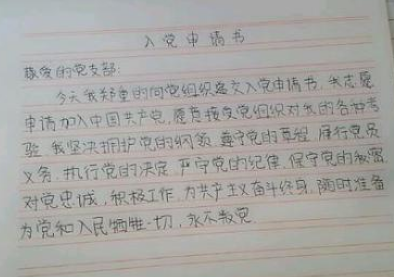 入党申请书
敬爱的党支部:
今天我郑重的向党组织递交入党申请书,我志愿
申请加入中国共产党,愿意接受党组织对我的各种考
验,我坚决拥护党的纲领,遵守党的章程,履行党员
义务,执行党的决定,严守党的纪律,保守党的秘密,
对党忠诚,积极工作,为共产主义奋斗终身,随时准备
为党和人民牺牲一切,永不叛党.